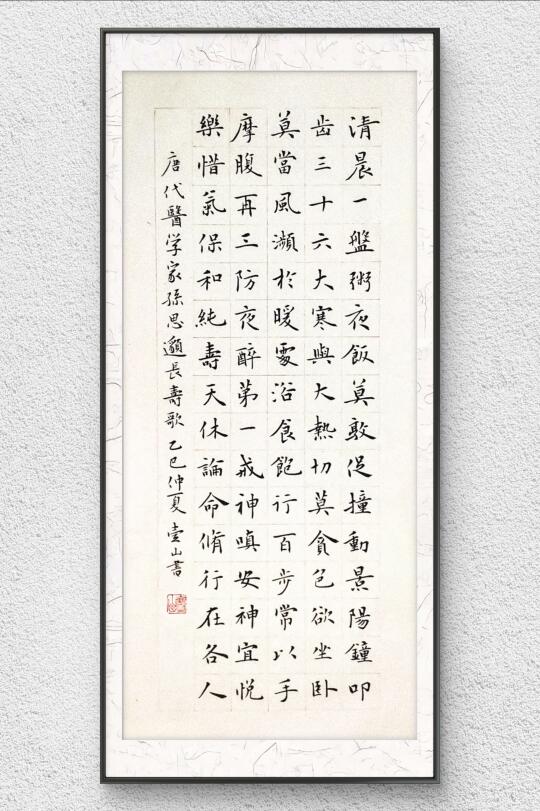 清晨一盤粥夜飯莫教促撞動景陽鐘叩
齿三十六大寒與大热切莫貪色欲坐卧
莫當風瀕於暖處浴食飽行百步常以手
摩腹再三防夜醉第一戒神嗔安神宜悦
樂惜氣保和純壽天休論命脩行在各人
唐代醫学家孫思邈長壽歌乙巳仲夏壹山書